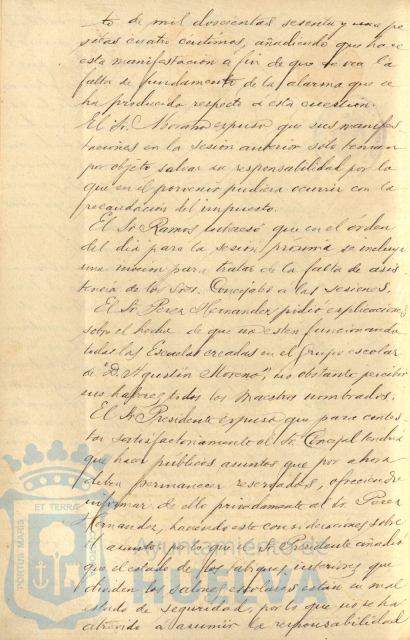 to de mil doscientas sesenta y una pe
setas cuatro céntimos, añadiendo que hace
esta manifestación a fin de que se vea la
falta de fundamento de la alarma que se
ha producido respecto a esta cuestión.
El Sr. Moreno expuso que sus manifes
taciones en la sesión anterior solo tenían
por objeto salvar su responsabilidad por lo
que en el porvenir pudiera ocurrir con la
recaudación del impuesto.
El Sr. Ramos interesó que en el órden
del día para la sesión próxima se incluya
una moción para tratar de la falta de asis
tencia de los Sres. Concejales a las sesiones.
El Sr. Perez Hernandez pidió explicaciones
sobre el hecho de que no esten funcionando
todas las Escuelas creadas en el Grupo escolar
de "D. Agustin Moreno", no obstante percibir
sus haberes todos los Maestros nombrados.
El Sr. Presidente expuso que para contes
tar satisfactoriamente al Sr. Concejal tendría
que hacer públicos asuntos que por ahora
deben permanecer reservados, ofreciendo
informar de ello privadamente al Sr. Perez
Hernandez, haciendo este consideraciones sobre
el asunto, por lo que el Sr. Presidente añadió
que el estado de los tabiques interiores que
dividen los salones escolares están en mal
estado de seguridad, por lo que no se ha
atrevido a asumir la responsabilidad
PORTUS MARIS ET TERRAE
Ayuntamiento de
HUELVA